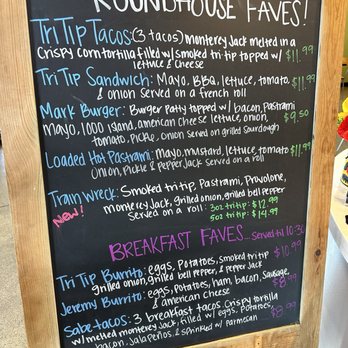 ROUNDHOUSE FAVES!
Tri Tip Tacos: (3 tacos) monterey Jack melted in a
Crispy corn tortilla filled w/ smoked tri tip topped w/
lettuce & cheese $11.99
Tri Tip Sandwich: Mayo, BBQ, lettuce, tomato,
& onion served on a french roll $11.99
Mark Burger: Burger Patty topped w/ bacon, Pastrami
mayo, 1000 island, american cheese, lettuce, onion, $9.50
tomato, Pickle, onion Served on grilled Sourdough
Loaded Hot Pastrami: mayo, mustard, lettuce, tomato
onion, Pickle & Pepper Jack served on a roll $11.99
Train Wreck: Smoked tri tip, Pastrami, Provolone,
New! monterey Jack, grilled onion, grilled bell pepper
Served on a roll: 3oz tri tip: $12.99
5oz tri tip: $14.99
BREAKFAST FAVES... Served til 10:30
Tri Tip Burrito: eggs, Potatoes, smoked tri tip $10.99
grilled onion, grilled bell pepper, & pepper Jack
Jeremy Burrito: eggs, Potatoes, ham, bacon, Sausage,
& american cheese $8.99
Sabe-tacos: 3 breakfast tacos Crispy tortilla
w/ melted monterey Jack, filled w/ eggs, Potatoes, $8.99
bacon, Jalapeños, & sprinkled w/ Parmesan